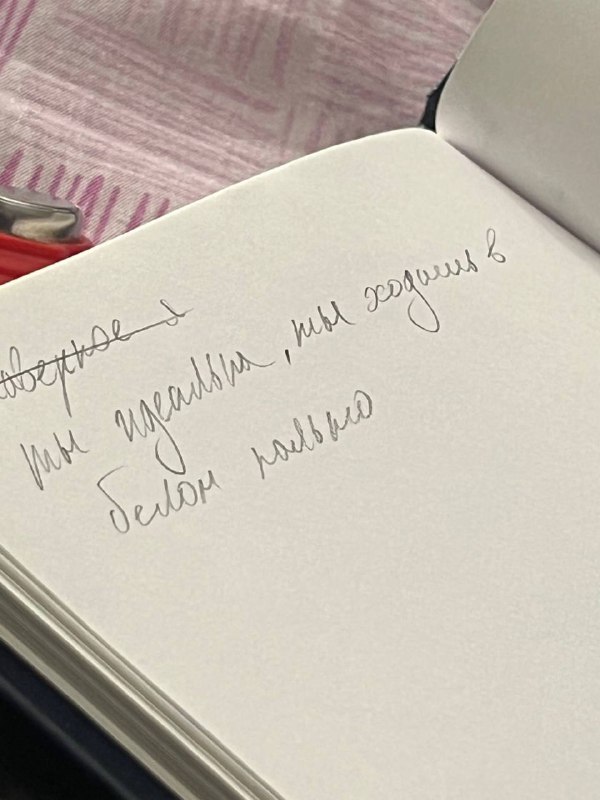 ты идеальна, ты ходишь в
белом пальто